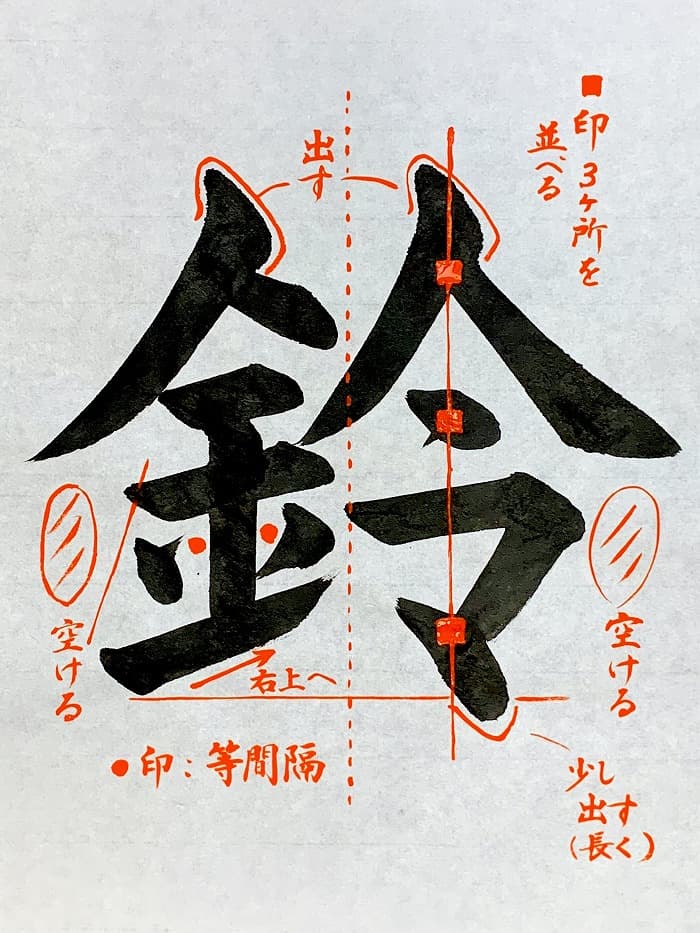 ■印3ヶ所を
並べる
出す
鈴
空ける
空ける
右上へ
●印：等間隔
少し
出す
(長く)